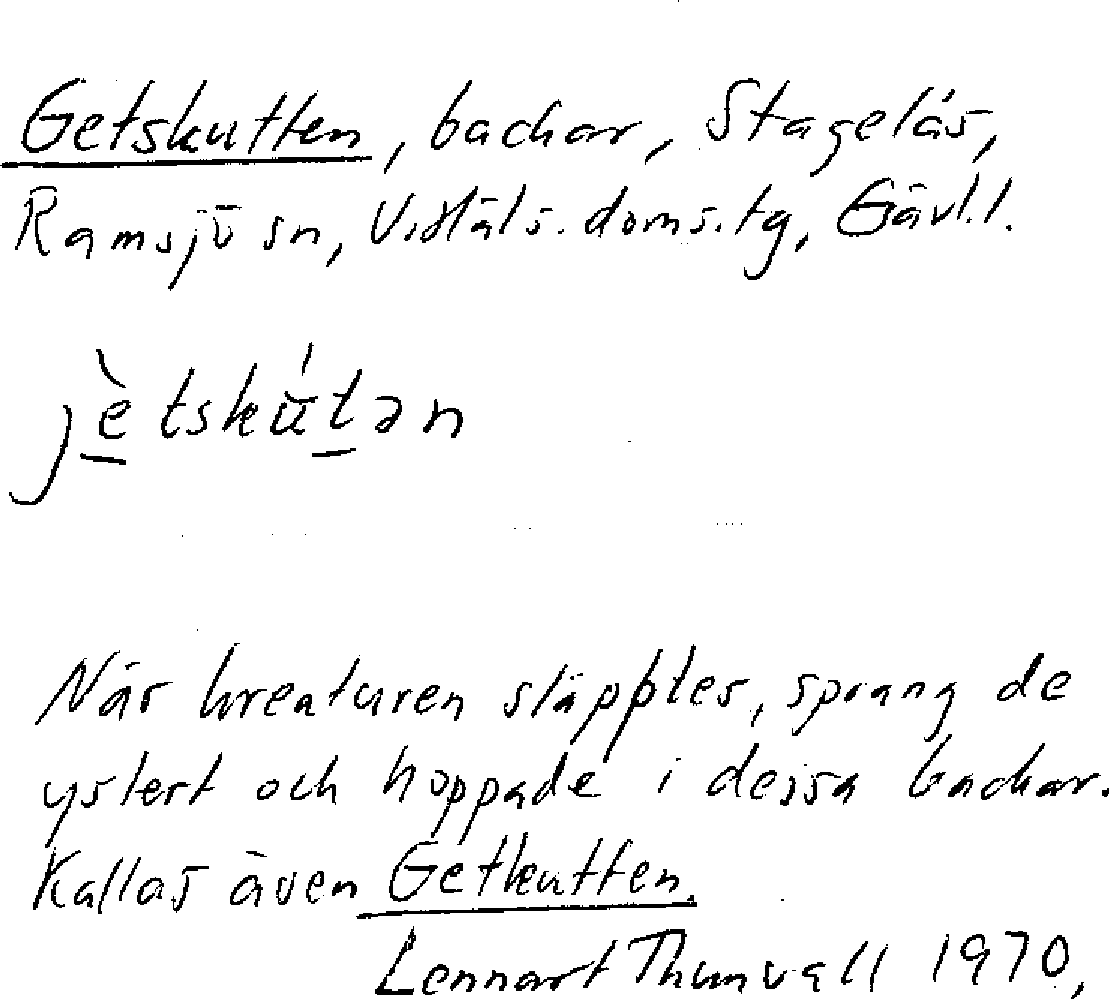 Getskutten, backar, Stagelås,
Ramsjö sn, V. Häls. doms.tg, Gävl.l.
jètskútən
När kreaturen släpptes, sprang de
ystert och hoppade i dessa backar.
Kallas även Getkutten.
Lennart Thunvall 1970,